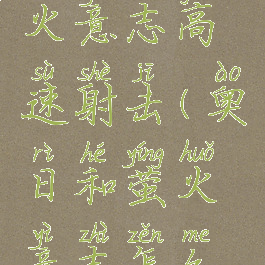 火意志高
sù shè jī ào
速射击(奥
rì hé yíng huǒ
日和萤火
yì zhì zěn me
意志怎么